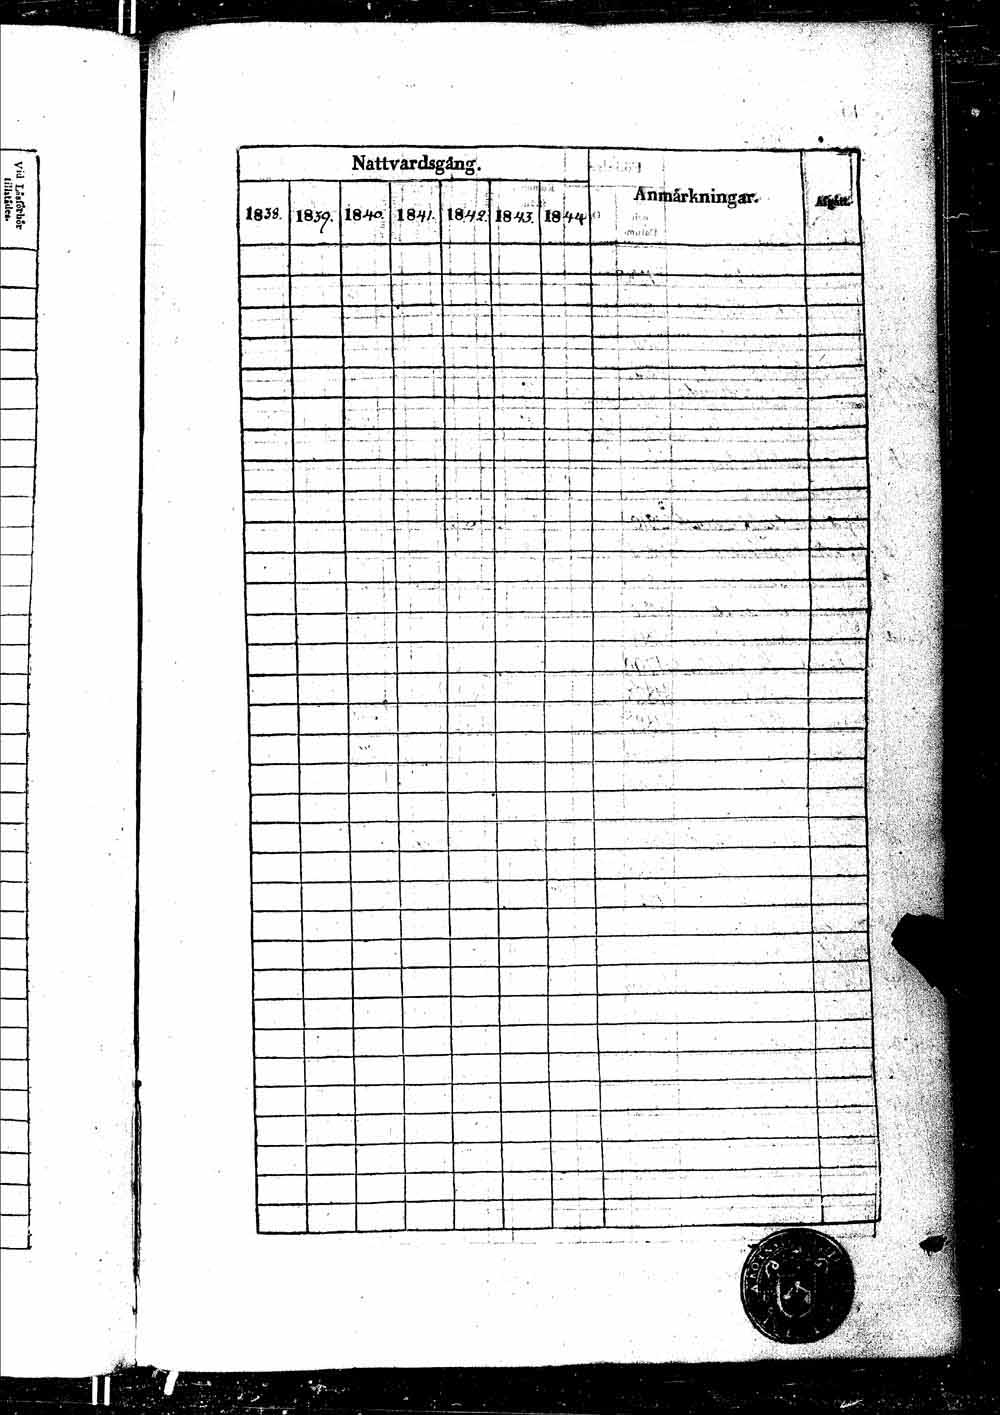 Vid Läsförhör
tillstädes.
Nattvardsgång.
Anmärkningar.
Afgått.
1838. 1839. 1840. 1841. 1842. 1843. 1844